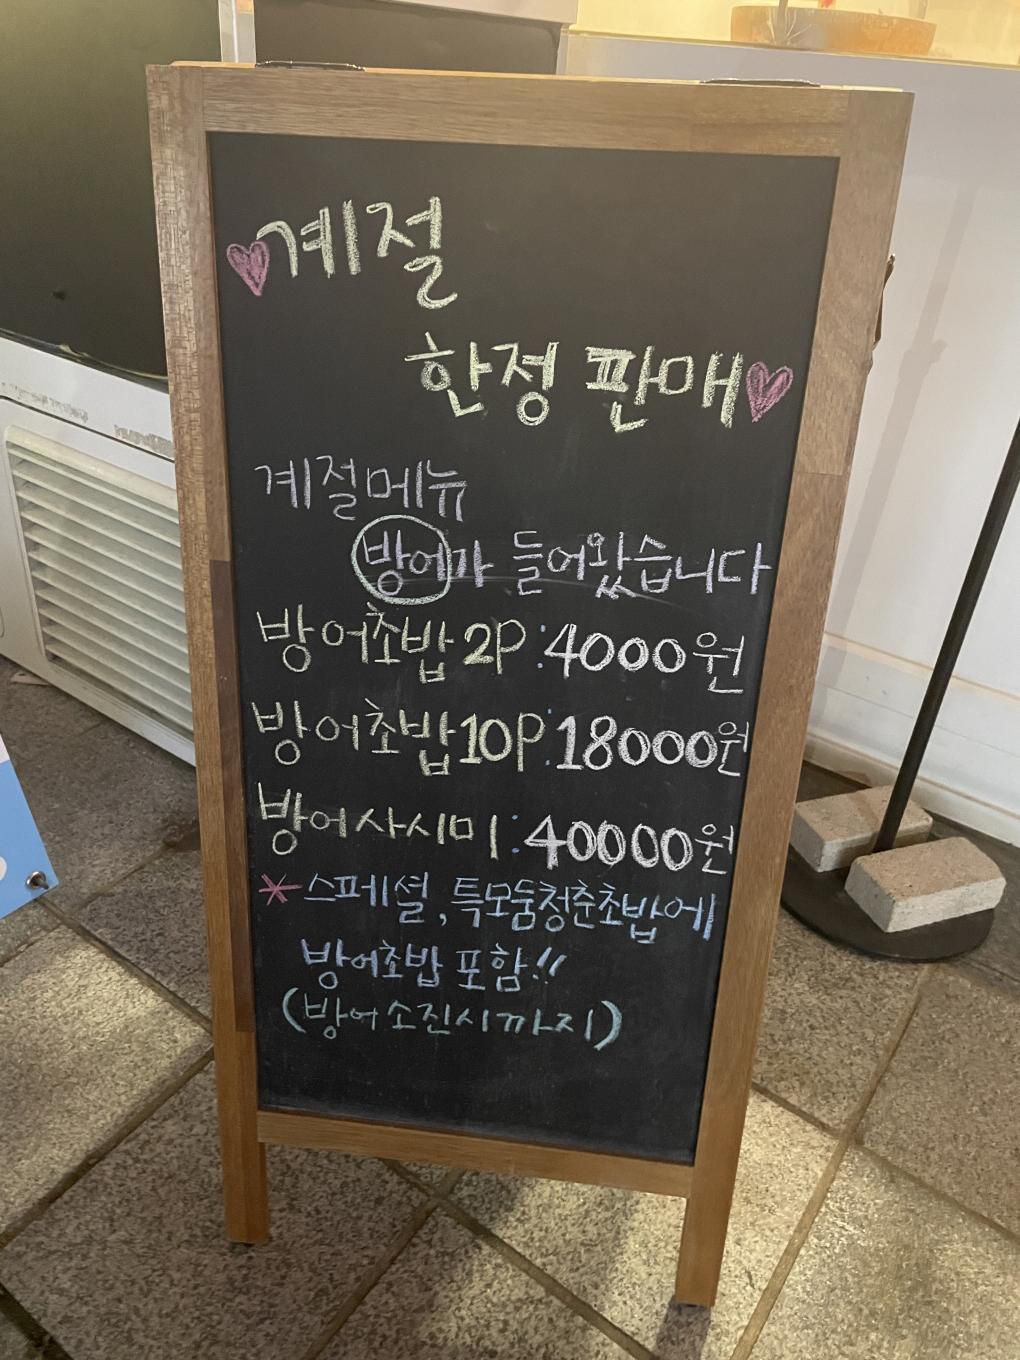 계절
한정 판매
계절메뉴
방어가 들어왔습니다
방어초밥 2P : 4000원
방어초밥 10P : 18000원
방어사시미 : 40000원
* 스페셜, 특모둠청춘초밥에
방어초밥 포함!!
(방어소진시까지)